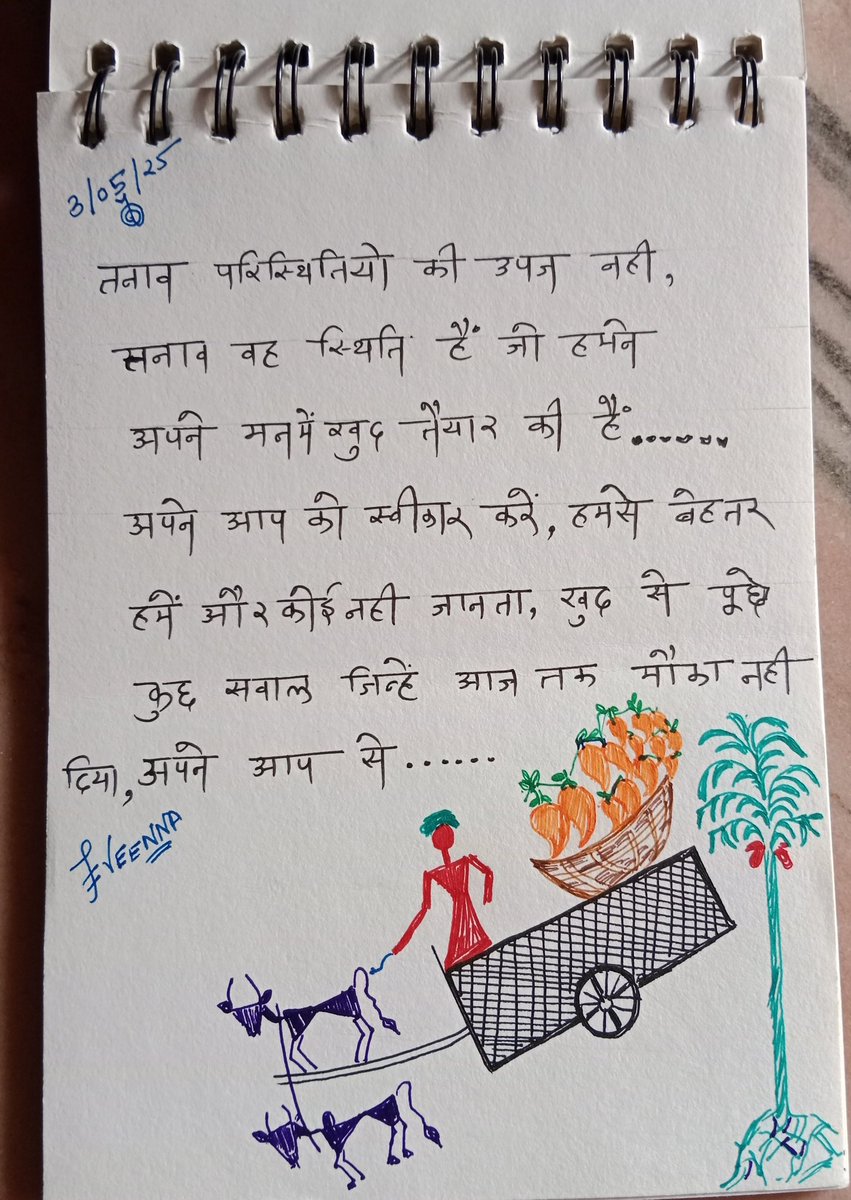 3/05/25
तनाव परिस्थितियो की उपज नही,
तनाव वह स्थिति हैं जो हमने
अपने मनमें खुद तैयार की हैं.......
अपने आप को स्वीकार करें, हमसे बेहतर
हमें और कोई नही जानता, खुद से पूछे
कुछ सवाल जिन्हें आज तक मौका नही
दिया, अपने आप से ......
VEENNA